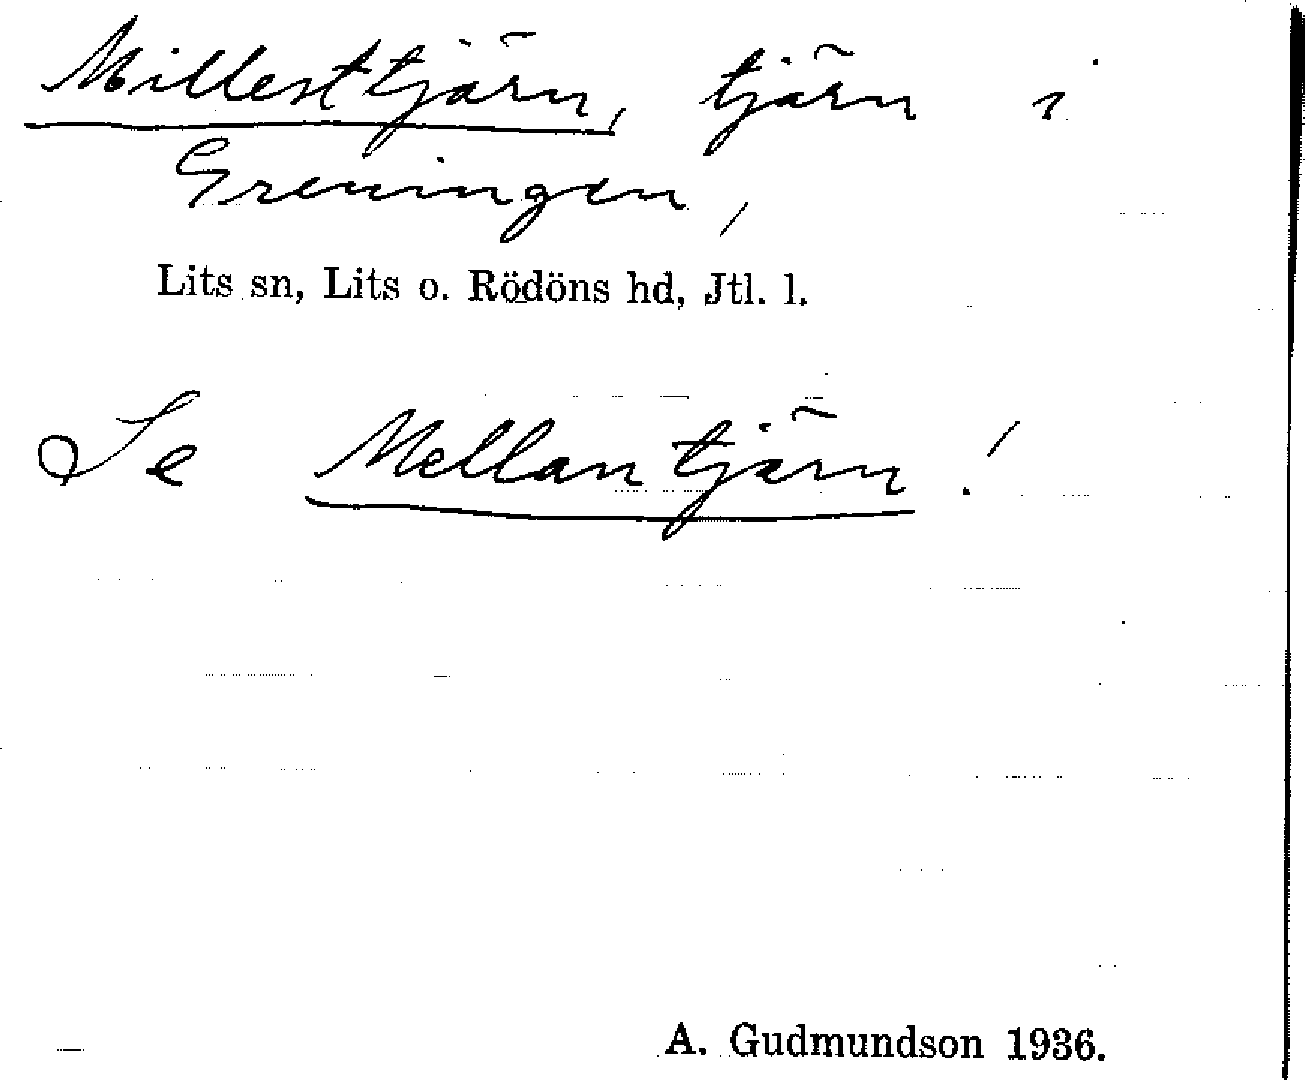 Millesttjärn, tjärn i
Greningen,
Lits sn, Lits o. Rödöns hd, Jtl. l.
Se Mellantjärn!
A. Gudmundson 1936.